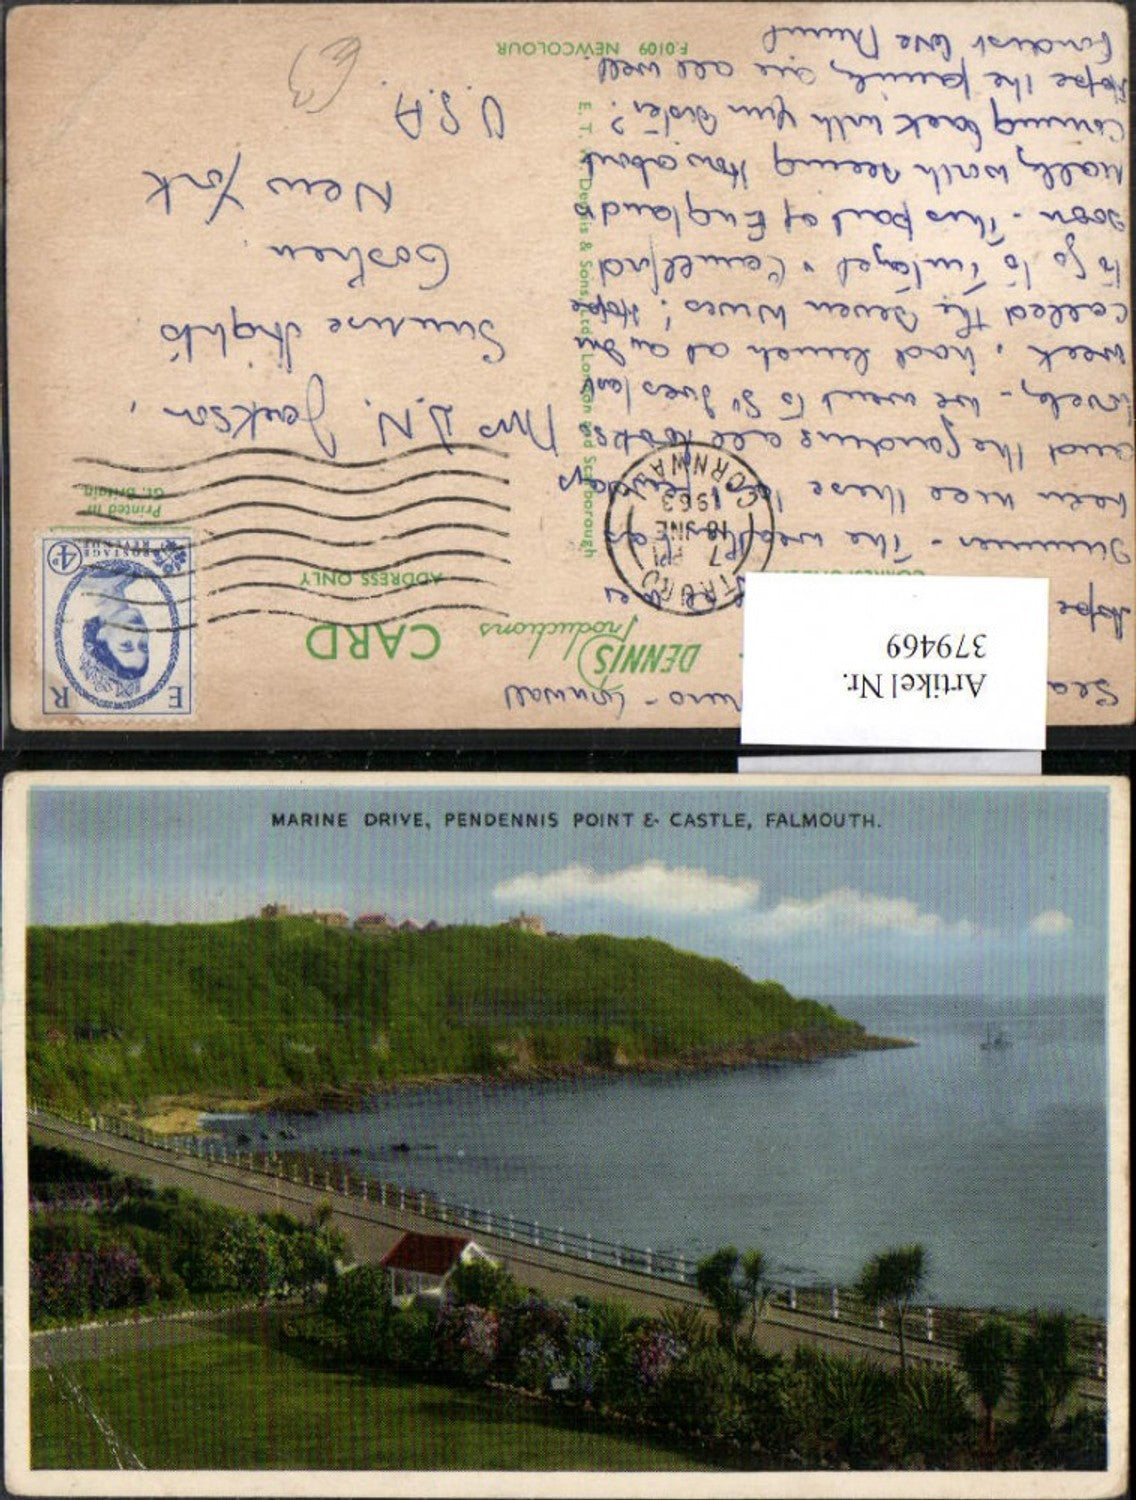 Truro - Cornwall
Hope
Summer - The weather has
been nice these
and the gardens all looks
lovely - we went to St Ives last
week, had lunch at an Inn
called the Seven Wives; Hope
to go to Tintagel & Camelford
soon - This part of England is
really worth seeing How about
coming back with your Sister?
Hope the family are all well
Fondest love
DENNIS Productions
CARD
ADDRESS ONLY
Printed in
Gt. Britain
E R
POSTAGE
REVENUE
4D
TRURO
7 PM
18 JNE
1963
CORNWALL
Mrs D.N. Jackson,
Sunrise Heights
Goshen
New York
U.S.A.
E. T. W. Dennis & Sons Ltd. London and Scarborough
F.0109 NEWCOLOUR
Artikel Nr.
379469
MARINE DRIVE, PENDENNIS POINT & CASTLE, FALMOUTH.